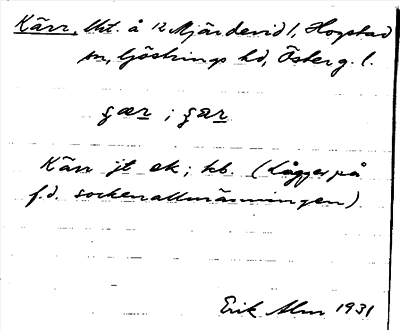 Kärr, lht. å 12 Mjärdevid 1, Hogstad
sn, Göstrings hd, Österg. l.
ɕær ; ɕar
Kärr jt ek; kb. (Ligger på
f.d. sockenallmänningen).
Erik Alm 1931